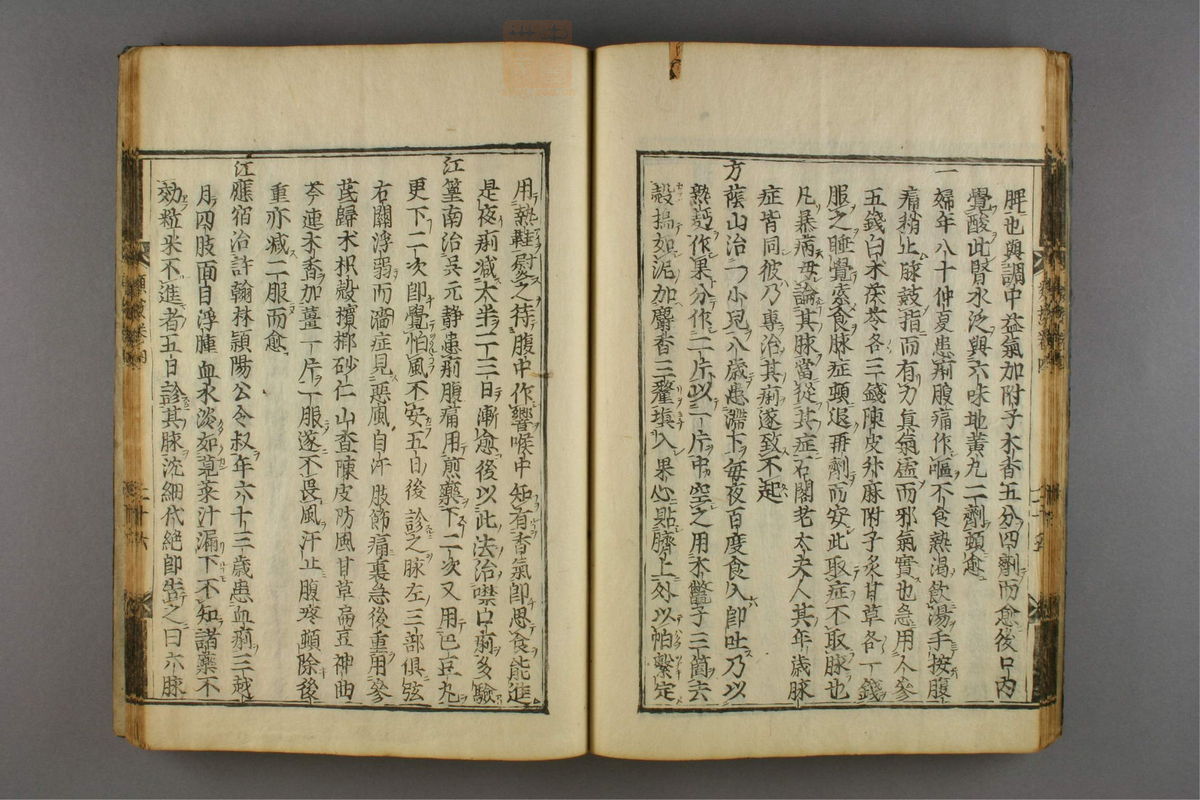 脾也與調中益氣加附子木香五分四劑而愈後口内
覺酸此腎水泛與六味地黄丸二劑頓愈
一婦年八十仲夏患痢腹痛作嘔不食熱渇飲湯手按腹
痛稍止脉鼓指而有力真氣虚而邪氣實也急用人參
五錢白术茯苓各三錢陳皮升麻附子炙甘草各一錢
服之睡覺索食脉症頓退再劑而安此取症不取脉也
凡暴病毋論其脉當從其症石閣老太夫人其年歳脉
症皆同彼乃專治其痢遂致不起
方蔭山治一小兒八歳患滯下毎夜百度食入即吐乃以
熱麪作果分作二片以一片中空之用木鼈子三箇去
殻搗如泥加麝香三釐塡入果心貼臍上外以帕繫定
用熱鞋熨之待腹中作響喉中知有香氣即思食能進
是夜痢減太半二三日漸愈後以此法治噤口痢多驗
江篁南治吳元静患痢腹痛用煎藥下二次又用巴豆丸
更下二次即覺怕風不安五日後診之脉左三部俱弦
右關浮弱而濇症見惡風自汗肢節痛裏急後重用參
芪歸术枳殻檳榔砂仁山査陳皮防風甘草扁豆神曲
芩連木香加薑一片一服遂不畏風汗止腹疼頓除後
重亦减二服而愈
江應宿治許翰林頴陽公令叔年六十三歳患血痢三越
月四肢面目浮腫血水淡如莧菜汁漏下不知諸藥不
効粒米不進者五日診其脉沈細代絶即告之曰六脉